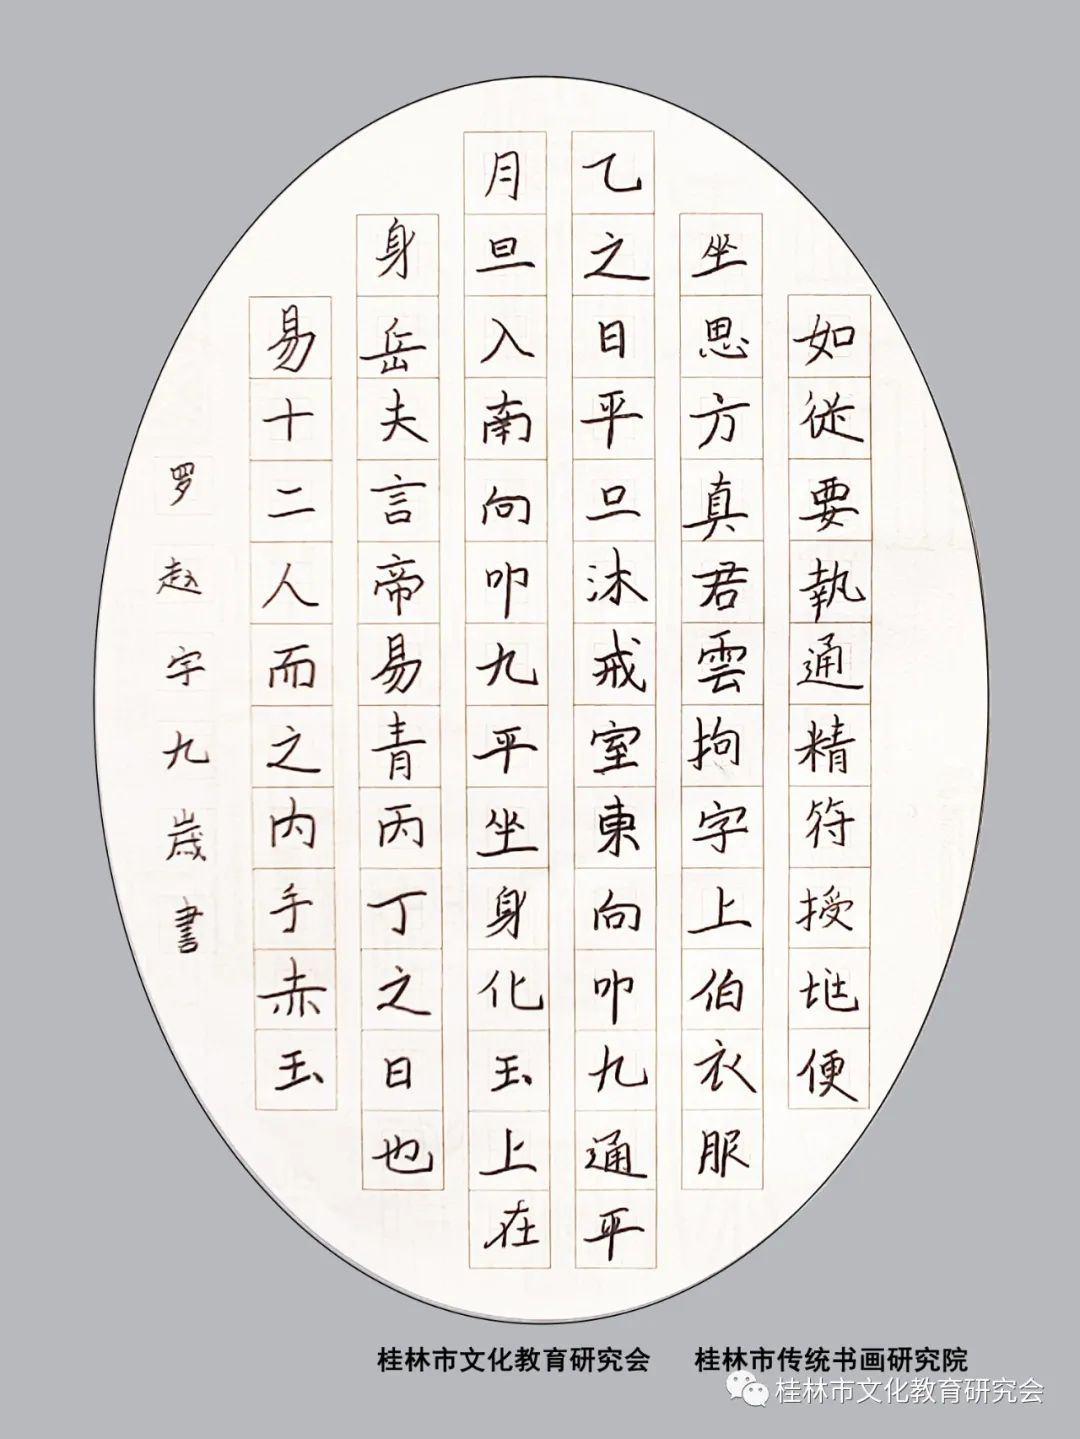 如從要執通精符授地便
坐思方真君雲拘字上伯衣服
乙之日平旦沐戒室東向叩九通平
月旦入南向叩九平坐身化玉上在
身岳夫言帝易青丙丁之日也
易十二人而之内手赤玉
罗赵宇九歲書
桂林市文化教育研究会 桂林市传统书画研究院
桂林市文化教育研究会